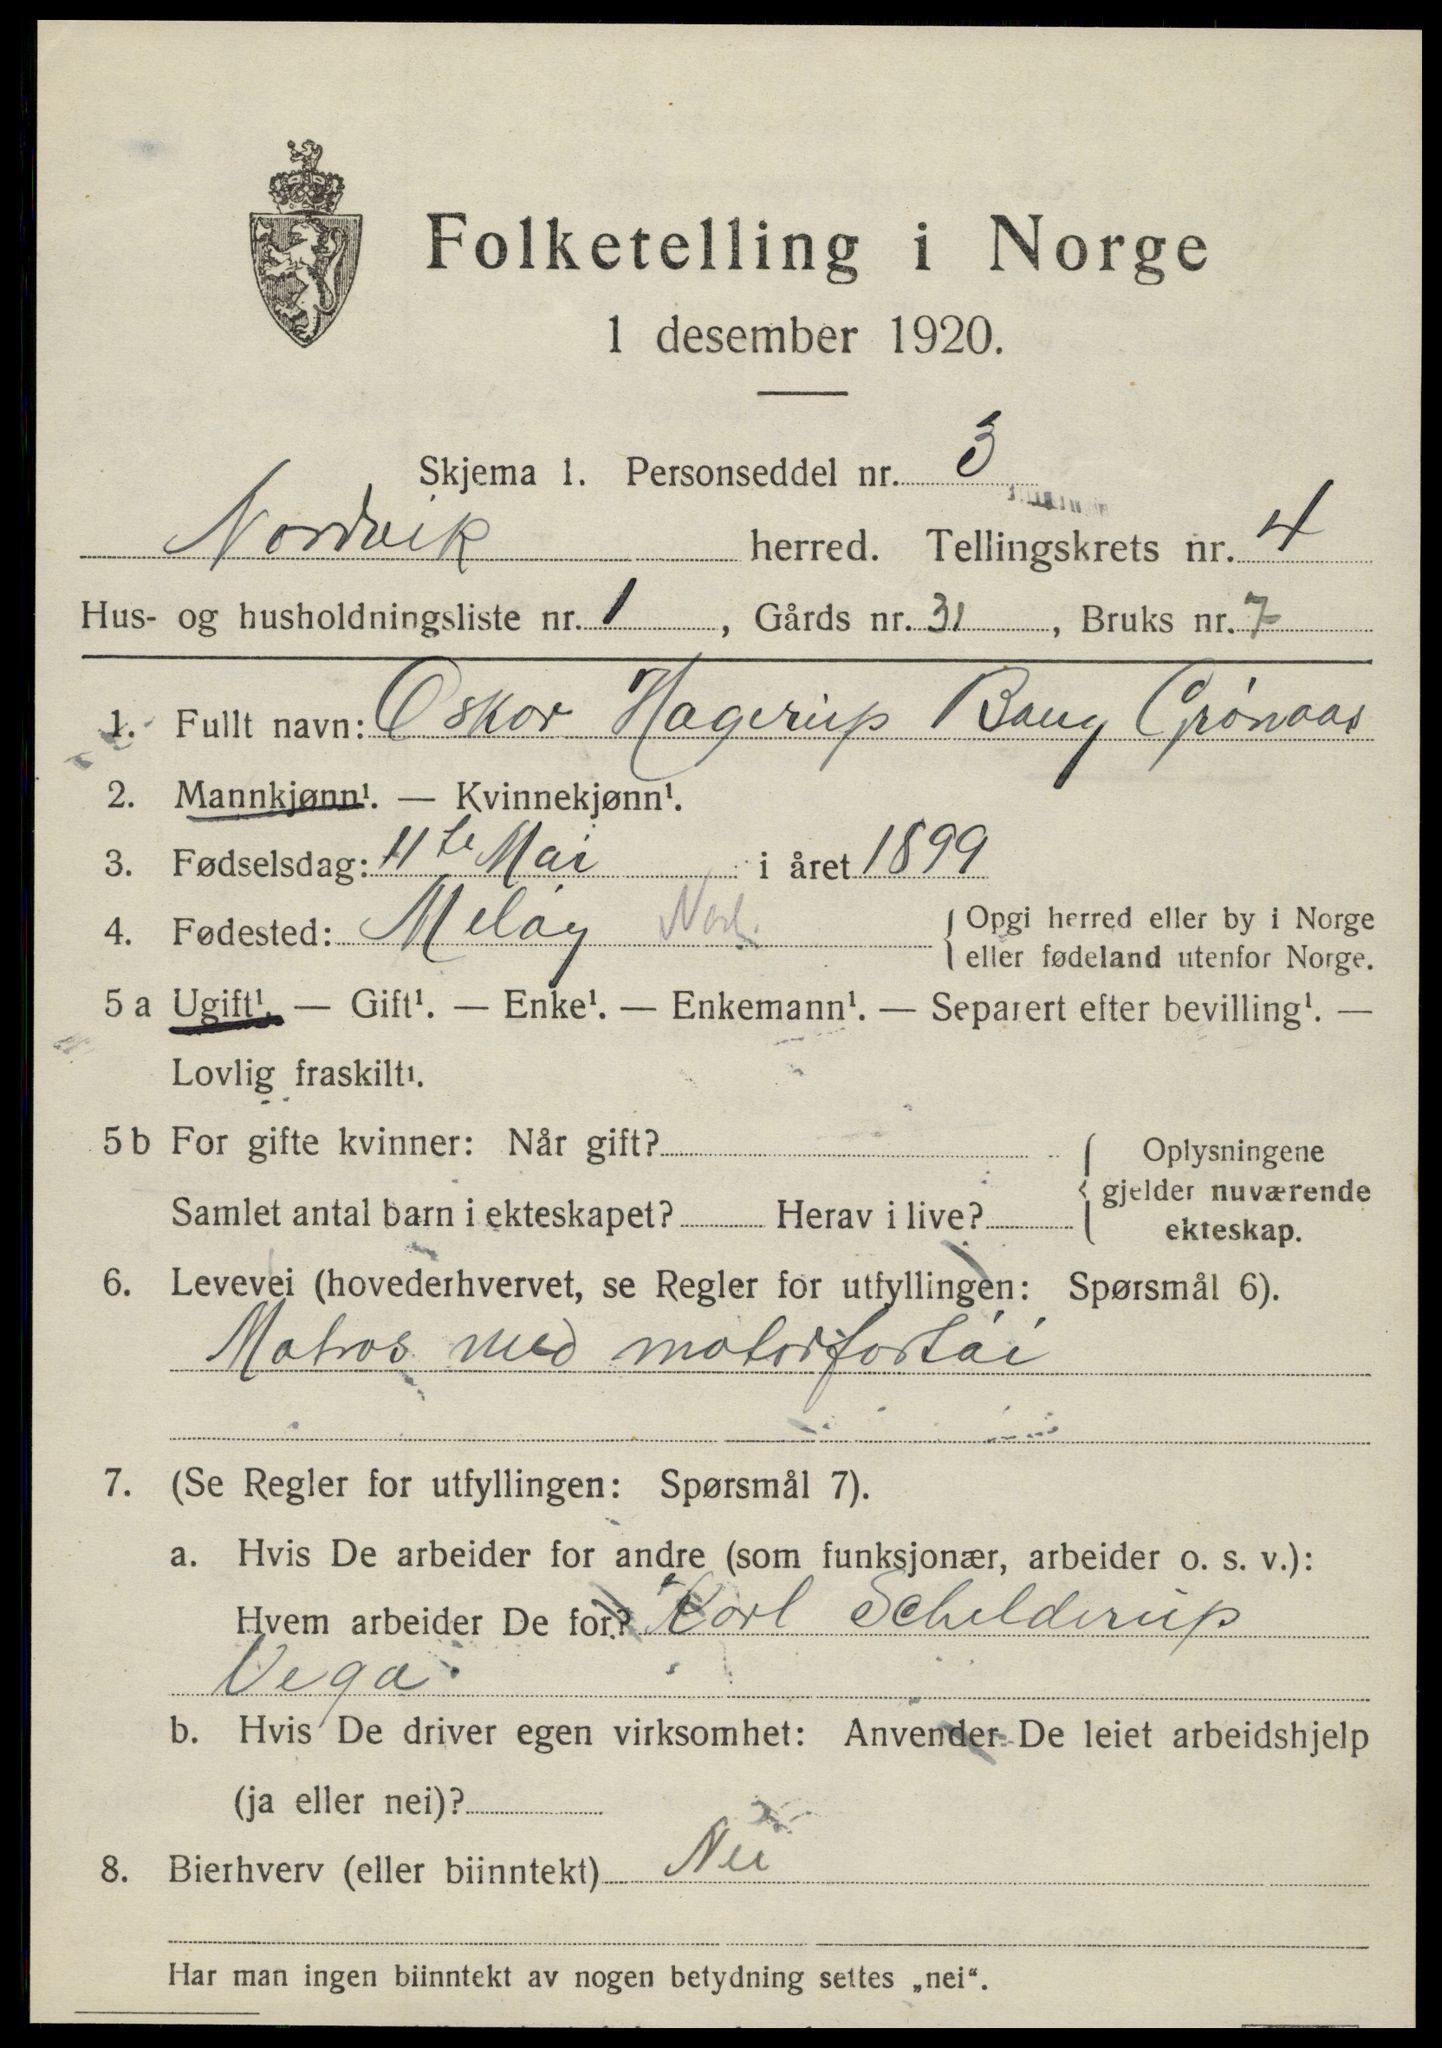 Folketelling i Norge
1 desember 1920.
Skjema 1. Personseddel nr. 3
Nordvik herred. Tellingskrets nr. 4
Hus- og husholdningsliste nr. 1, Gårds nr. 31, Bruks nr. 7
1. Fullt navn: Oskar Hagerup Baug Grønaas
2. Mannkjønn¹. — Kvinnekjønn¹.
3. Fødselsdag: 11te Mai i året 1899
4. Fødested: Meløy Nordl. { Opgi herred eller by i Norge
eller fødeland utenfor Norge.
5 a Ugift¹. — Gift¹. — Enke¹. — Enkemann¹. — Separert efter bevilling¹. —
Lovlig fraskilt¹.
5 b For gifte kvinner: Når gift? { Oplysningene
gjelder nuværende
Samlet antal barn i ekteskapet? Herav i live?
ekteskap.
6. Levevei (hovederhvervet, se Regler for utfyllingen: Spørsmål 6).
Matros med motorfortøi
7. (Se Regler for utfyllingen: Spørsmål 7).
a. Hvis De arbeider for andre (som funksjonær, arbeider o. s. v.):
Hvem arbeider De for? Karl Schelderup
Vega.
b. Hvis De driver egen virksomhet: Anvender De leiet arbeidshjelp
(ja eller nei)?
8. Bierhverv (eller biinntekt) Nei
Har man ingen biinntekt av nogen betydning settes „nei“.